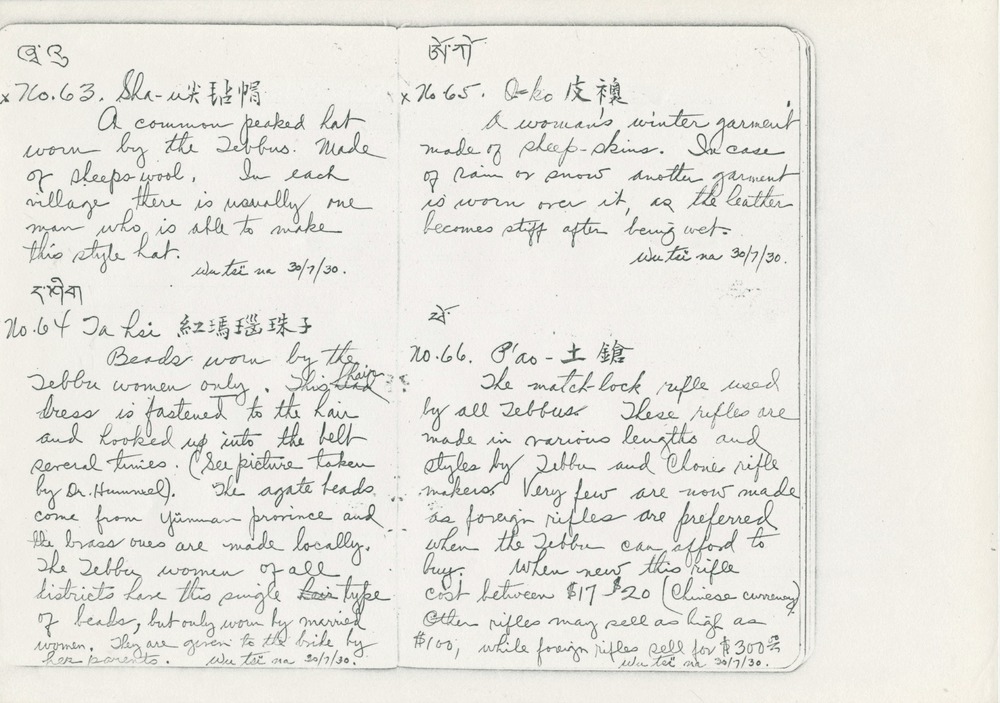 x No. 63. Sha-u 尖毡帽
A common peaked hat
worn by the Tebbus. Made
of sheeps-wool. In each
village there is usually one
man who is able to make
this style hat.
Wu tsï na 30/7/30.
No. 64 Ta hsi 紅瑪瑙珠子
Beads worn by the
Tebbu women only. This hair
dress is fastened to the hair
and hooked up into the belt
several times. (See picture taken
by Dr. Hummel). The agate beads
come from Yünnan province and
the brass ones are made locally.
The Tebbu women of all
districts have this single hair type
of beads, but only worn by married
women. They are given to the bride by
her parents. Wu tsï na 30/7/30.
x No 65. O-ko 皮襖
A woman's winter garment
made of sheep-skins. In case
of rain or snow another garment
is worn over it, as the leather
becomes stiff after being wet.
Wu tsï na 30/7/30.
No. 66. P'ao - 土鎗
The match-lock rifle used
by all Tebbus. These rifles are
made in various lengths and
styles by Tebbu and Chone rifle
makers. Very few are now made
as foreign rifles are preferred
when the Tebbu can afford to
buy. When new this rifle
cost between $17 - $20 (Chinese currency).
Other rifles may sell as high as
$100, while foreign rifles sell for $300
Wu tsï na 30/7/30.